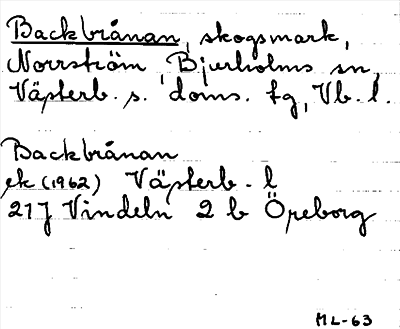 Backbrånan, skogsmark,
Norrström, Bjurholms sn,
Västerb. s. doms. fg, Vb. l.
Backbrånan
ek (1962) Västerb. l
21J Vindeln 2 b Öreborg
ML-63